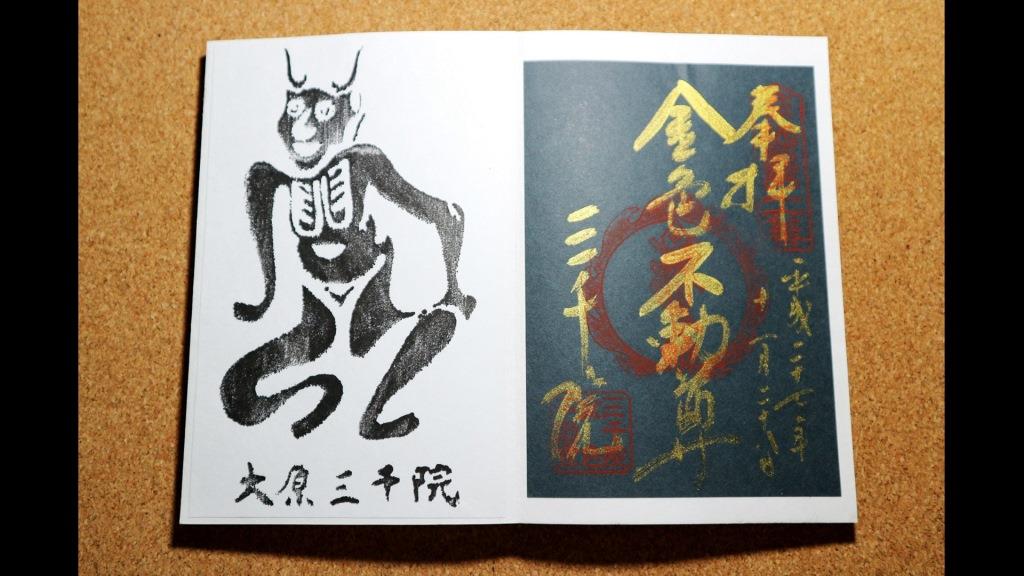 大原三千院
奉拝
平成二十七年
十一月二十日
金色不動尊
三千院